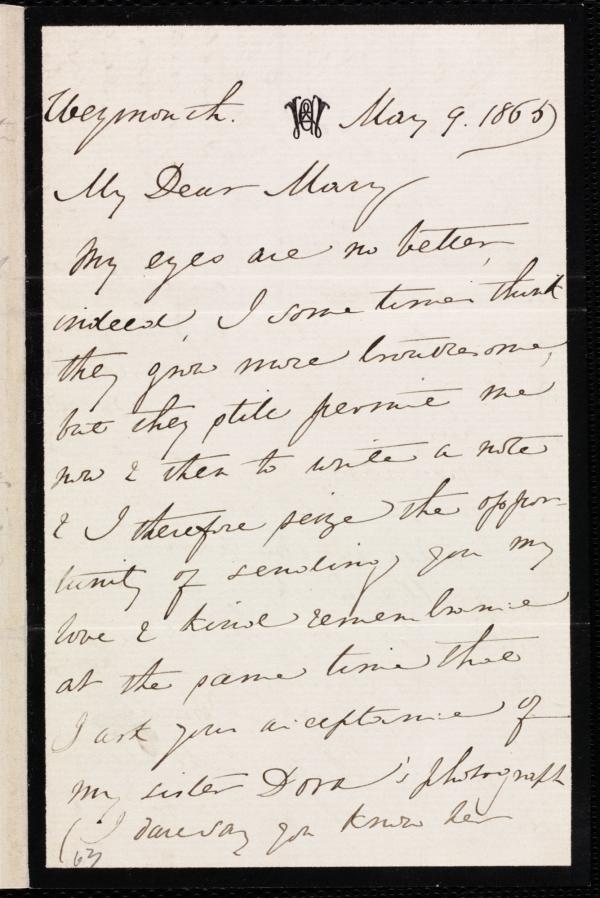 Weymouth. May 9. 1865
My Dear Mary
My eyes are no better,
indeed, I sometimes think
they grow more troublesome,
but they still permit me
now & then to write a note
& I therefore seize the oppor-
tunity of sending you my
love & kind remembrance
at the same time that
I ask your acceptance of
my sister Dora's photograph
(I daresay you know her